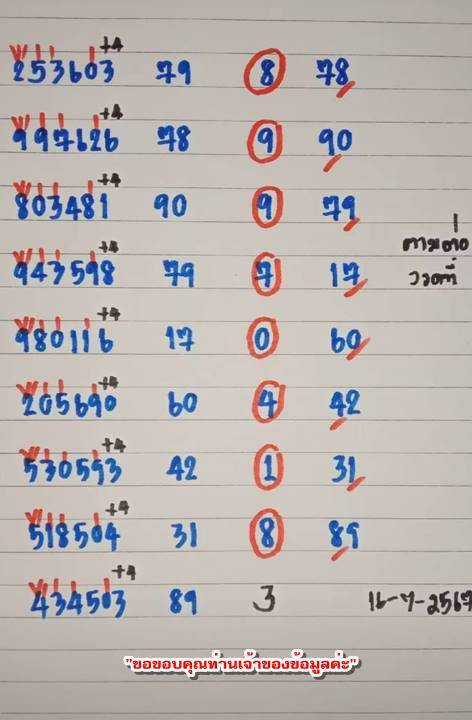 +4
253603 79 8 78
+4
997626 78 9 90
+4
803481 90 9 79
ตามต่อ
+4
943598 79 7 17
งวดที่
+4
980116 17 0 60
+4
205690 60 4 42
+4
530593 42 1 31
+4
518504 31 8 89
+4
434503 89 3 16-7-2567
"ขอขอบคุณท่านเจ้าของข้อมูลค่ะ"